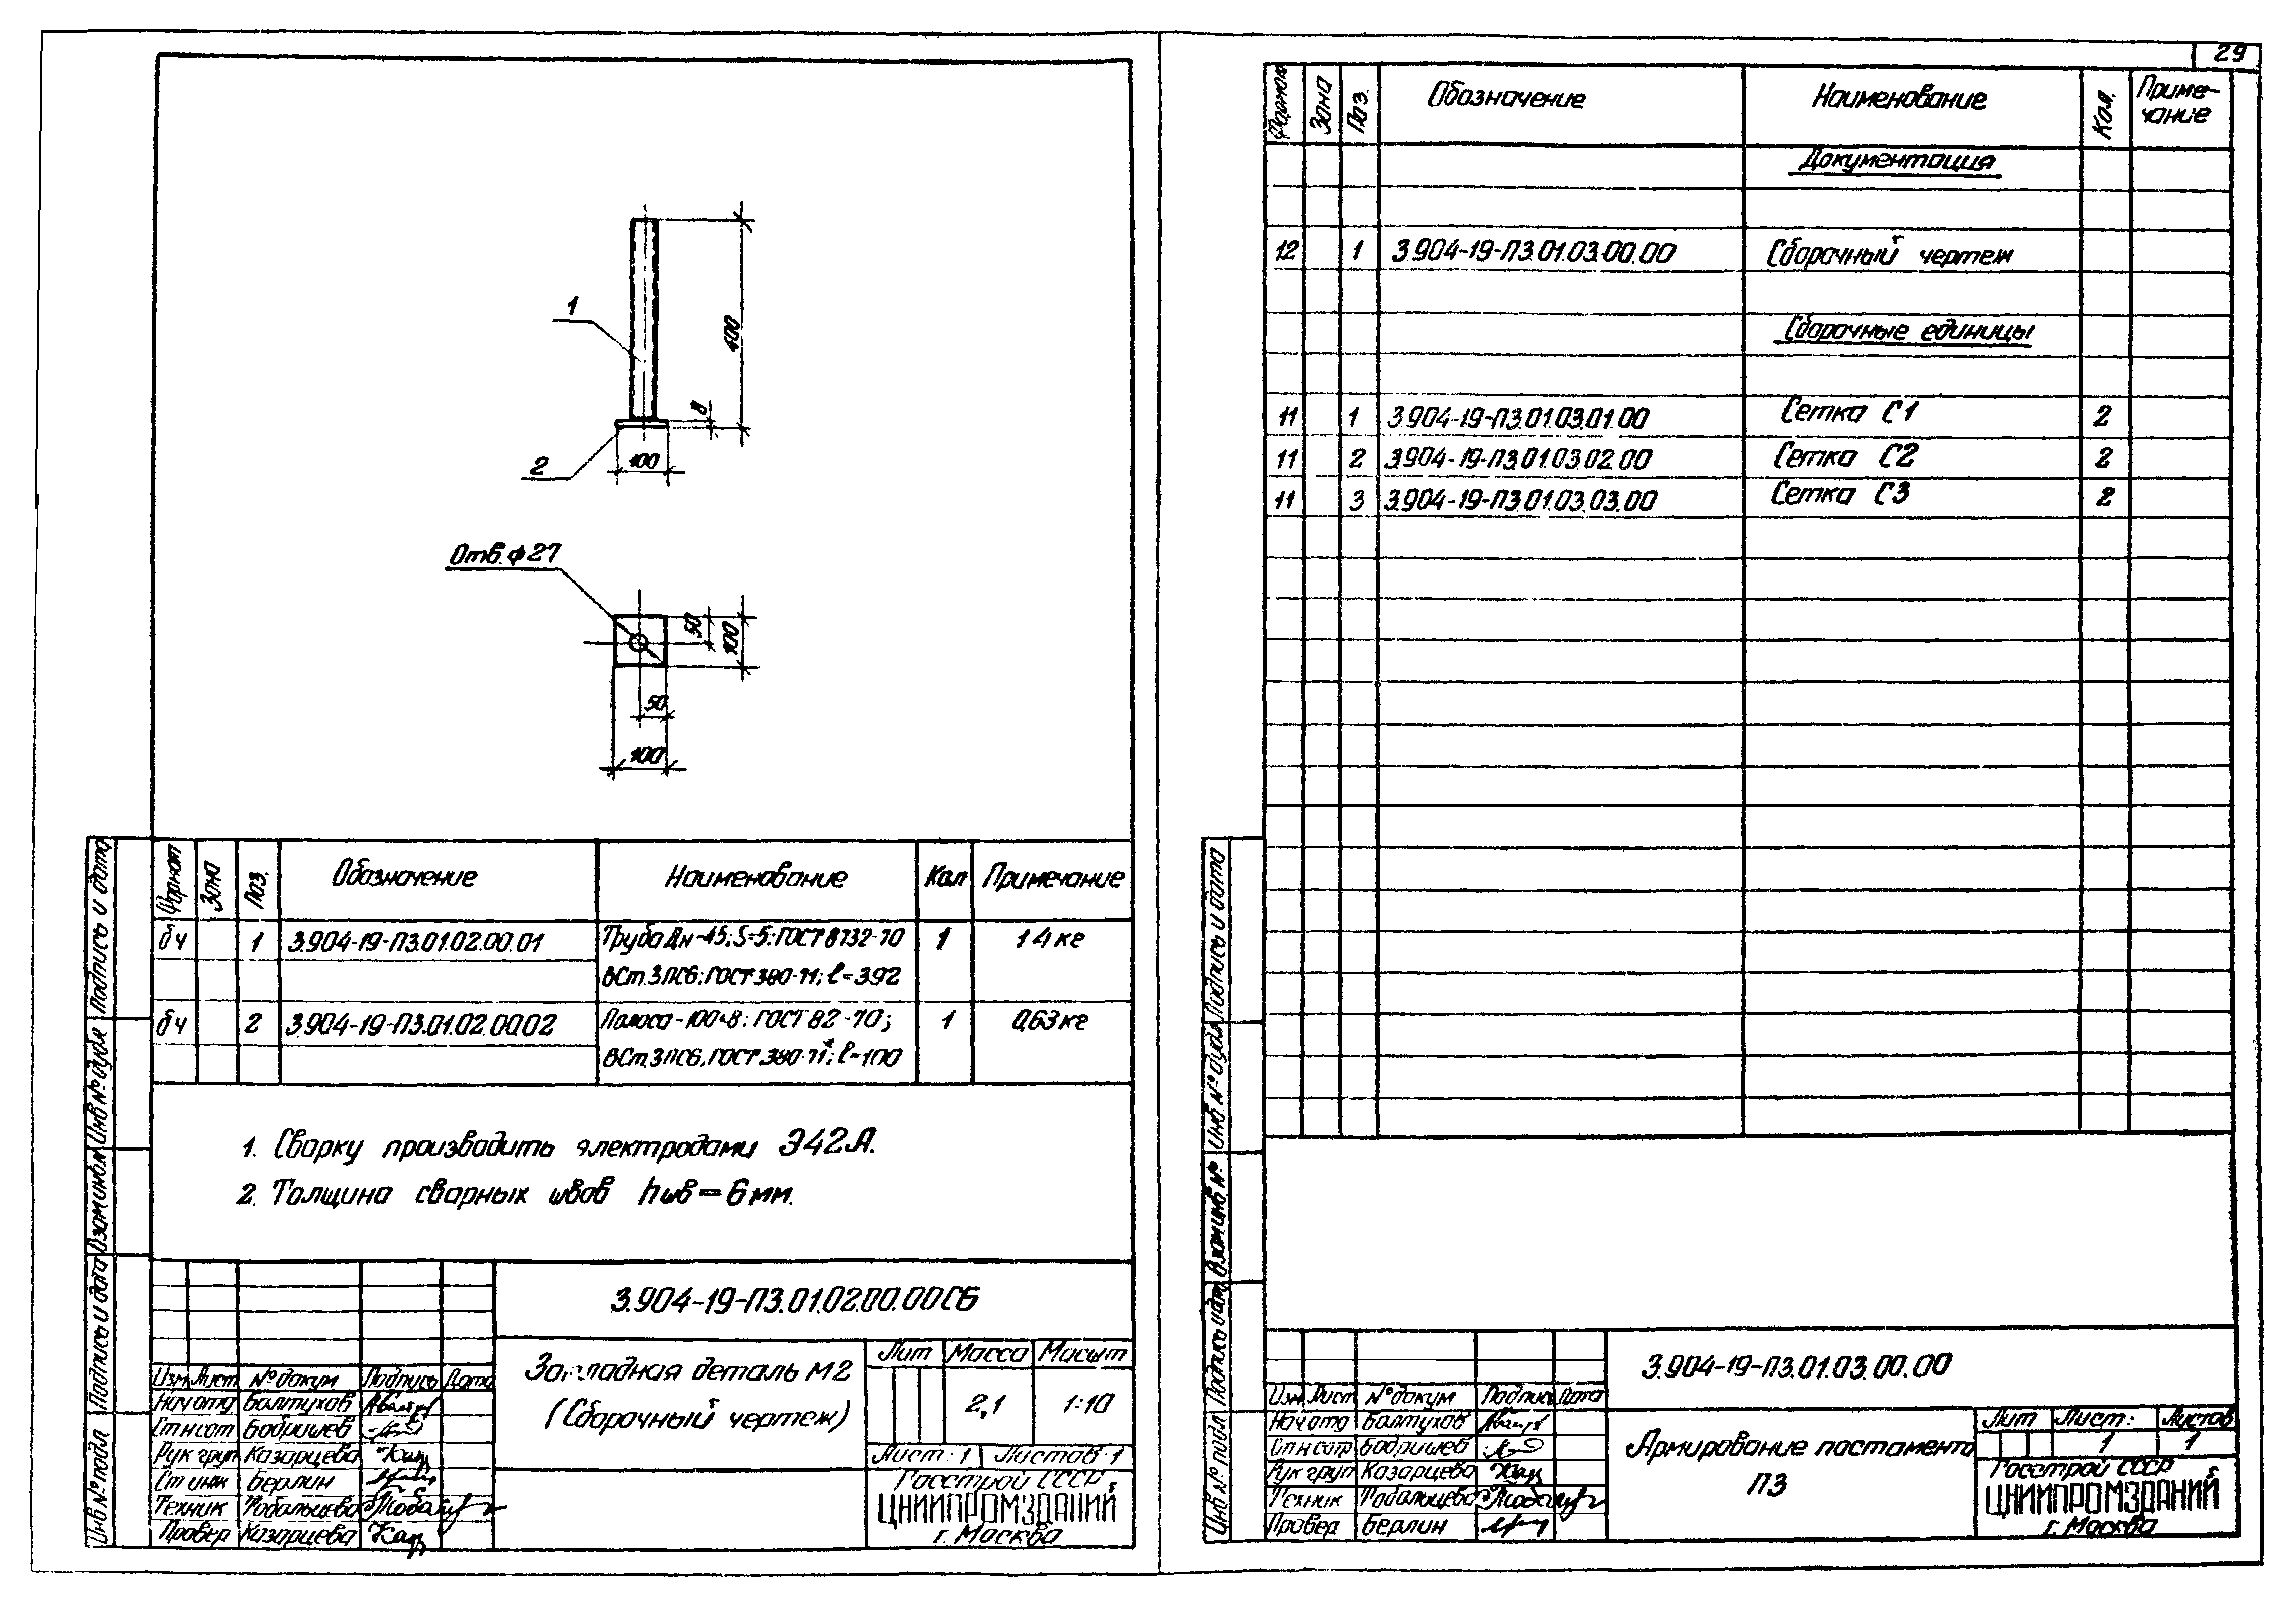 29
400
1
8
2
100
Отв. ф27
50
100
50
100
Формат Зона Поз. Обозначение Наименование Кол Примечание
бч 1 3.904-19-П3.01.02.00.01 Труба Дн-45; S=5; ГОСТ 8732-70 1 1.4 кг
ВСт.3ПС6; ГОСТ 380-71; ℓ=392
бч 2 3.904-19-П3.01.02.00.02 Полоса-100×8; ГОСТ 82-70; 1 0,63 кг
ВСт.3ПС6, ГОСТ 380-71*; ℓ=100
1. Сварку производить электродами Э42А.
2. Толщина сварных швов hшв=6мм.
3.904-19-П3.01.02.00.00СБ
Закладная деталь М2
(Сборочный чертеж)
Лит Масса Масшт
2,1 1:10
Лист: 1 Листов: 1
Госстрой СССР
ЦНИИПРОМЗДАНИЙ
г. Москва
Изм Лист № докум Подпись Дата
Нач отд Балтухов
Ст н сот Бобришев
Рук груп Казарцева
Ст инж Берлин
Техник Тобольцева
Провер Казарцева
Подпись и дата
Инв № дубл
Взам инв №
Подпись и дата
Инв № подл
Формат Зона Поз. Обозначение Наименование Кол. Приме-
чание
Документация
12 1 3.904-19-П3.01.03.00.00 Сборочный чертеж
Сборочные единицы
11 1 3.904-19-П3.01.03.01.00 Сетка С1 2
11 2 3.904-19-П3.01.03.02.00 Сетка С2 2
11 3 3.904-19-П3.01.03.03.00 Сетка С3 2
3.904-19-П3.01.03.00.00
Армирование постамента
П3
Лит Лист: Листов
1 1
Госстрой СССР
ЦНИИПРОМЗДАНИЙ
г. Москва
Изм Лист № докум Подпись Дата
Нач отд Балтухов
Ст н сотр Бобришев
Рук груп Казарцева
Техник Тобольцева
Провер Берлин
Подпись и дата
Инв № дубл
Взам инв №
Подпись и дат
Инв № подл